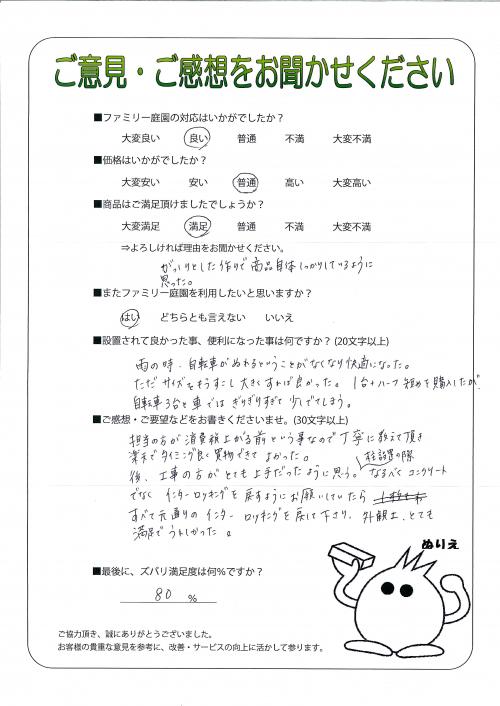 ご意見・ご感想をお聞かせください
■ファミリー庭園の対応はいかがでしたか？
大変良い 良い 普通 不満 大変不満
■価格はいかがでしたか？
大変安い 安い 普通 高い 大変高い
■商品はご満足頂けましたでしょうか？
大変満足 満足 普通 不満 大変不満
⇒よろしければ理由をお聞かせください。
がっしりとした作りで商品自体しっかりしているように
思った。
■またファミリー庭園を利用したいと思いますか？
はい どちらとも言えない いいえ
■設置されて良かった事、便利になった事は何ですか？(20文字以上)
雨の時、自転車がぬれるということがなくなり快適になった。
ただサイズをもうすこし大きくすれば良かった。1台+ハーフ 短めを購入したが
自転車3台と車ではぎりぎりすぎて少しでてしまう。
■ご感想・ご要望などをお書きくださいませ。(30文字以上)
担当の方が消費税上がる前という事なので丁寧に教えて頂き
楽天でタイミング良く買物できてよかった。
柱設置の際
後、工事の方がとても上手だったように思う。なるべくコンクリート
でなくインターロッキングを戻すようにお願いしていたら
すべて元通りのインターロッキングを戻して下さり、外観上、とても
満足でうれしかった。
ぬりえ
■最後に、ズバリ満足度は何％ですか？
80 %
ご協力頂き、誠にありがとうございました。
お客様の貴重な意見を参考に、改善・サービスの向上に活かして参ります。